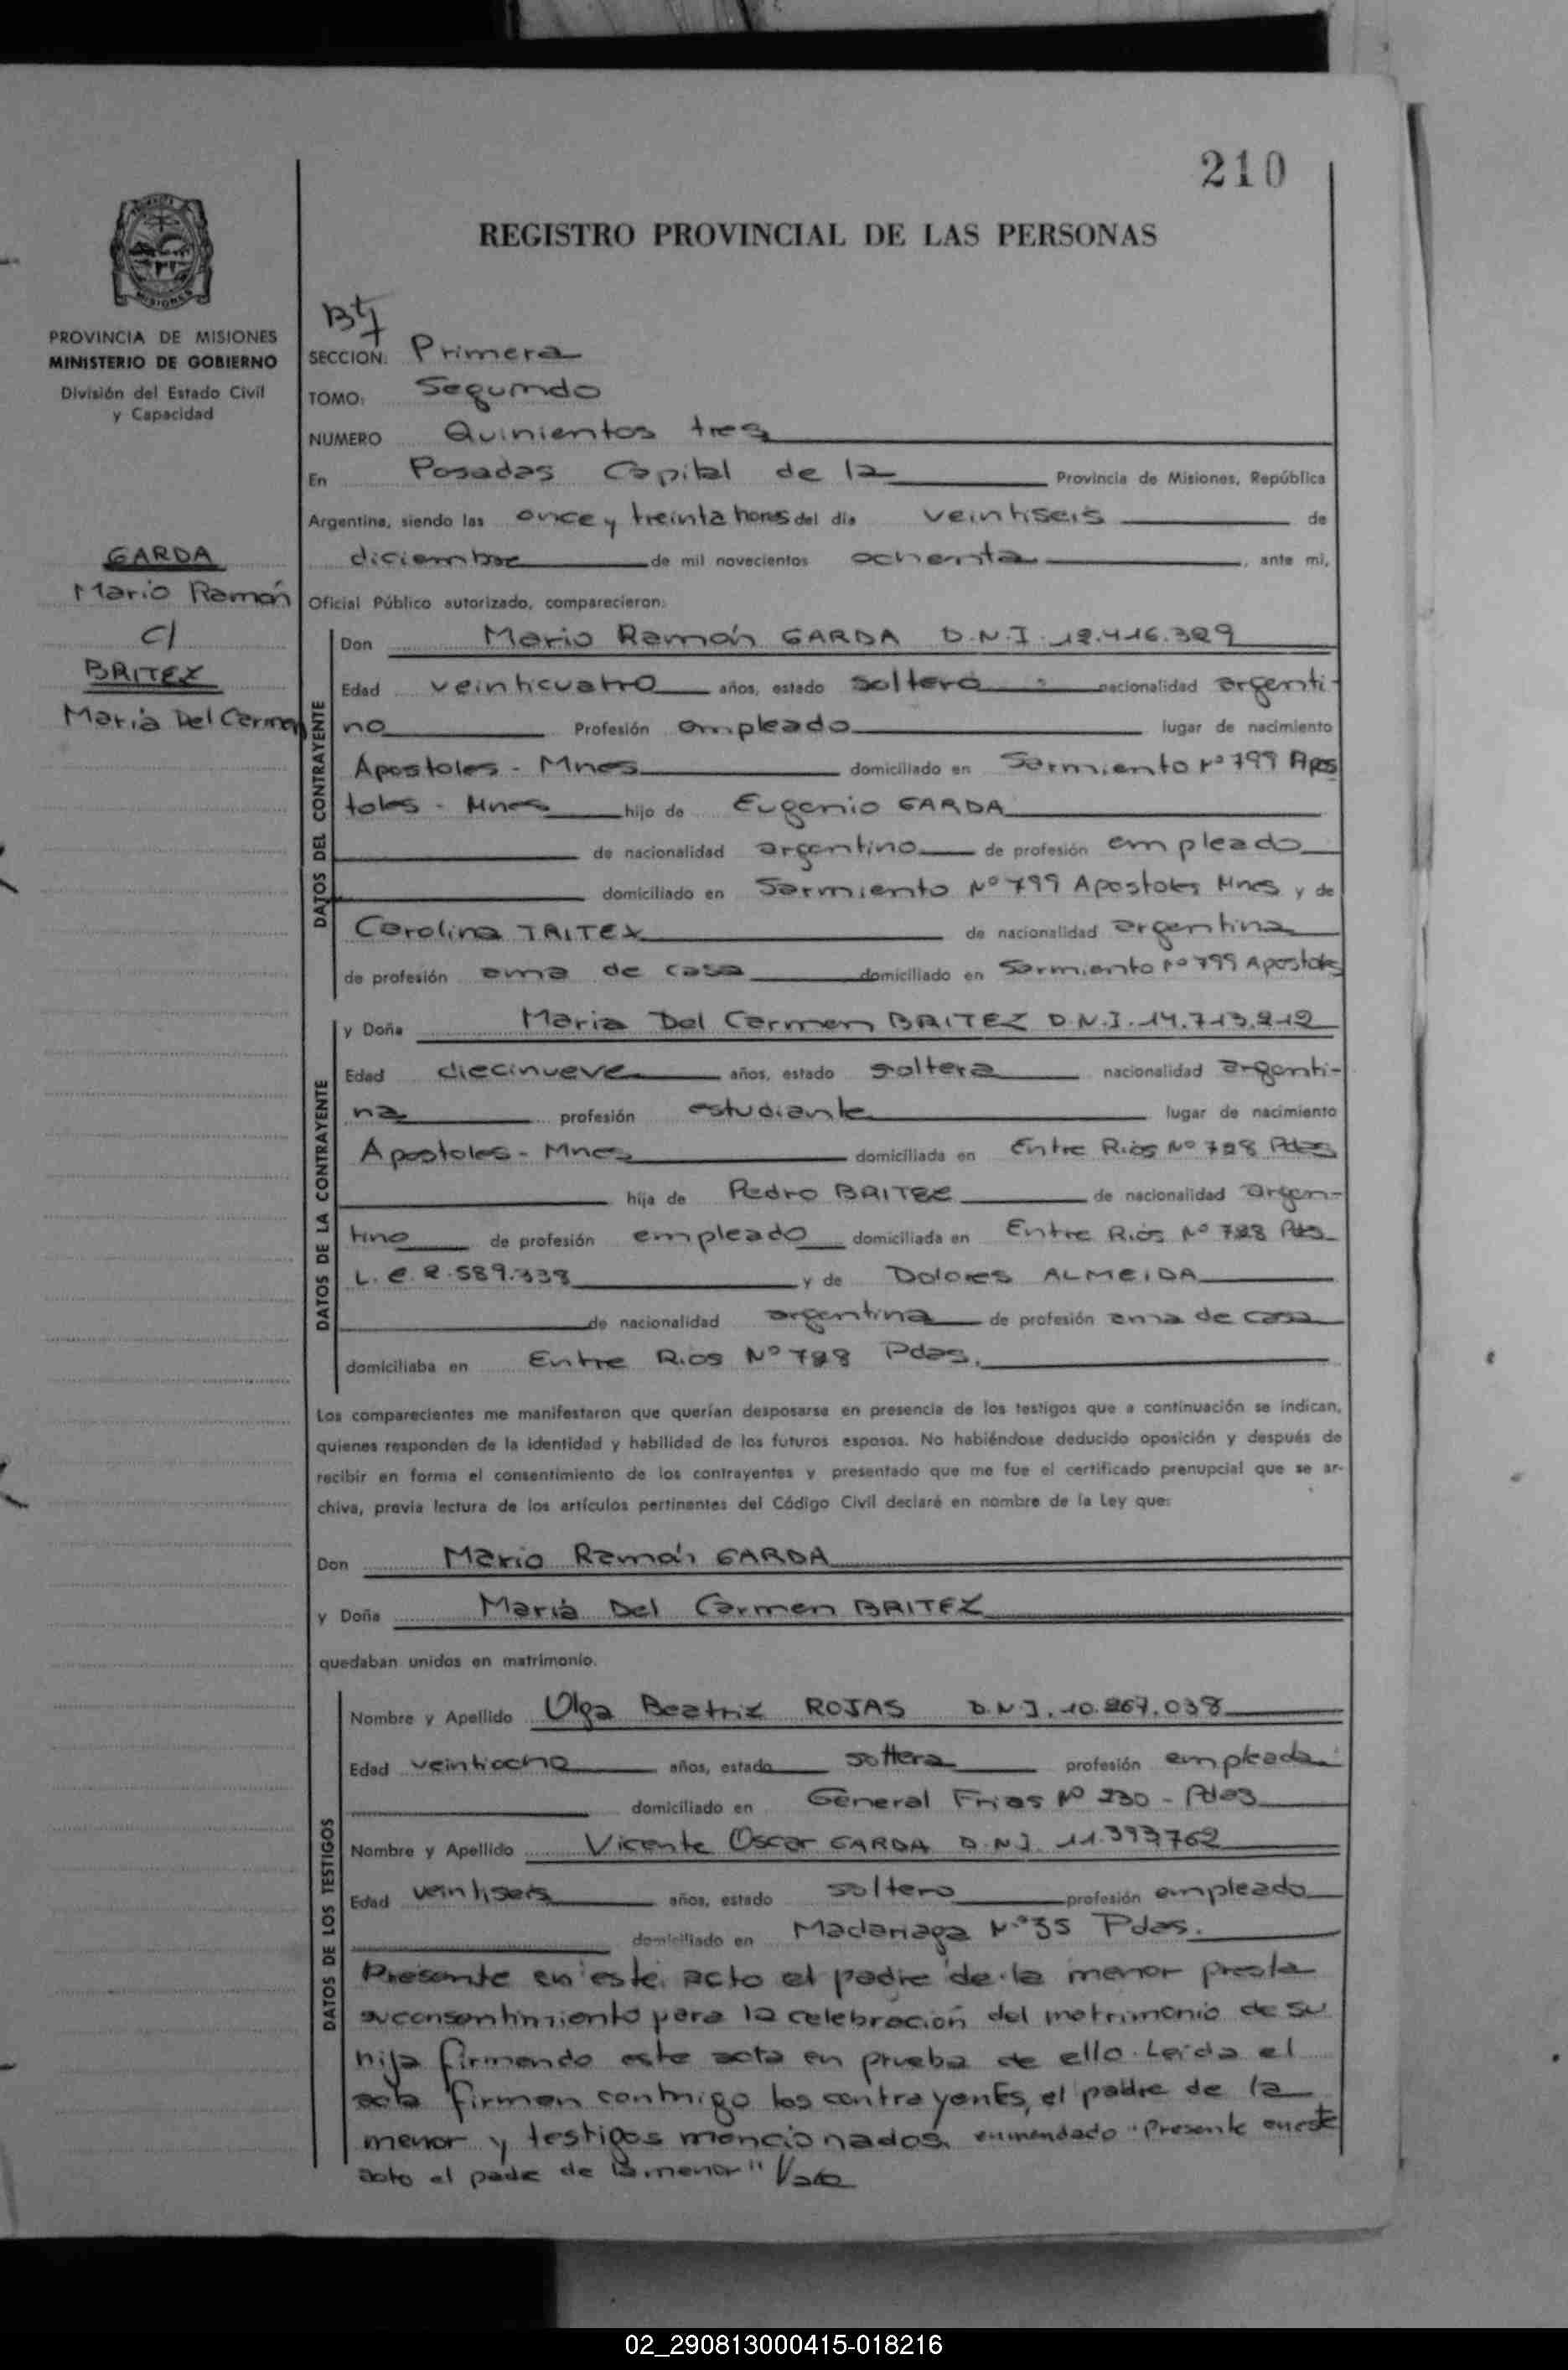 210
REGISTRO PROVINCIAL DE LAS PERSONAS
MISIONES
PROVINCIA DE MISIONES
MINISTERIO DE GOBIERNO
División del Estado Civil
y Capacidad
GARDA
Mario Ramón
C/
BRITEZ
Maria Del Carmen
SECCION: Primera
TOMO: Segundo
NUMERO Quinientos tres
En Posadas Capital de la Provincia de Misiones, República
Argentina, siendo las once y treinta horas del día veintiseis de
diciembre de mil novecientos ochenta, ante mi,
Oficial Público autorizado, comparecieron:
DATOS DEL CONTRAYENTE
Don Mario Ramón GARDA D.N.I. 12.416.329
Edad veinticuatro años, estado soltero nacionalidad argenti-
no Profesión empleado lugar de nacimiento
Apostoles - Mnes domiciliado en Sarmiento Nº 799 Apos
toles - Mnes hijo de Eugenio GARDA
de nacionalidad argentino de profesión empleado
domiciliado en Sarmiento Nº 799 Apostoles Mnes y de
Carolina TRITEX de nacionalidad argentina
de profesión ama de casa domiciliado en Sarmiento Nº 799 Apostoles
DATOS DE LA CONTRAYENTE
y Doña Maria Del Carmen BRITEZ D.N.I. 14.713.212
Edad diecinueve años, estado soltera nacionalidad argenti-
na profesión estudiante lugar de nacimiento
Apostoles - Mnes domiciliada en Entre Rios Nº 728 Pdas
hija de Pedro BRITEZ de nacionalidad argen-
tino de profesión empleado domiciliada en Entre Rios Nº 728 Pdas
L.E. 2.589.339 y de Dolores ALMEIDA
de nacionalidad argentina de profesión ama de casa
domiciliaba en Entre Rios Nº 728 Pdas.
Los comparecientes me manifestaron que querían desposarse en presencia de los testigos que a continuación se indican,
quienes responden de la identidad y habilidad de los futuros esposos. No habiéndose deducido oposición y después de
recibir en forma el consentimiento de los contrayentes y presentado que me fue el certificado prenupcial que se ar-
chiva, previa lectura de los artículos pertinentes del Código Civil declaré en nombre de la Ley que:
Don Mario Ramón GARDA
y Doña Maria Del Carmen BRITEZ
quedaban unidos en matrimonio.
DATOS DE LOS TESTIGOS
Nombre y Apellido Olga Beatriz ROJAS D.N.I. 10.267.038
Edad veintiocho años, estado soltera profesión empleada
domiciliado en General Frias Nº 230 - Pdas
Nombre y Apellido Vicente Oscar GARDA D.N.I. 11.393762
Edad veintiseis años, estado soltero profesión empleado
domiciliado en Madariaga Nº 35 Pdas.
Presente en este acto el padre de la menor presta
su consentimiento para la celebración del matrimonio de su
hija firmando este acta en prueba de ello. Leída el
acta firman conmigo los contrayentes, el padre de la
menor y testigos mencionados. enmendado "Presente en este
acto el padre de la menor" Vale
02_290813000415-018216